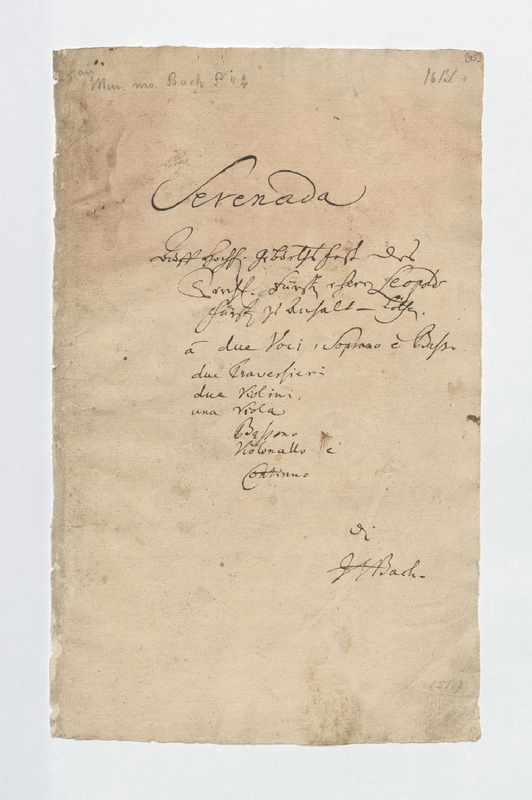 Mus. ms. Bach P 42
Serenada
Hochf. Geburths Fest des
Fürst Herrn Leopold
Fürst zu Anhalt-Cöth.
à due Voci, Soprano è Bass.
due Traversieri
due Violini.
una Viola
Bassono
Violoncello è
Continuo
di
JSBach.